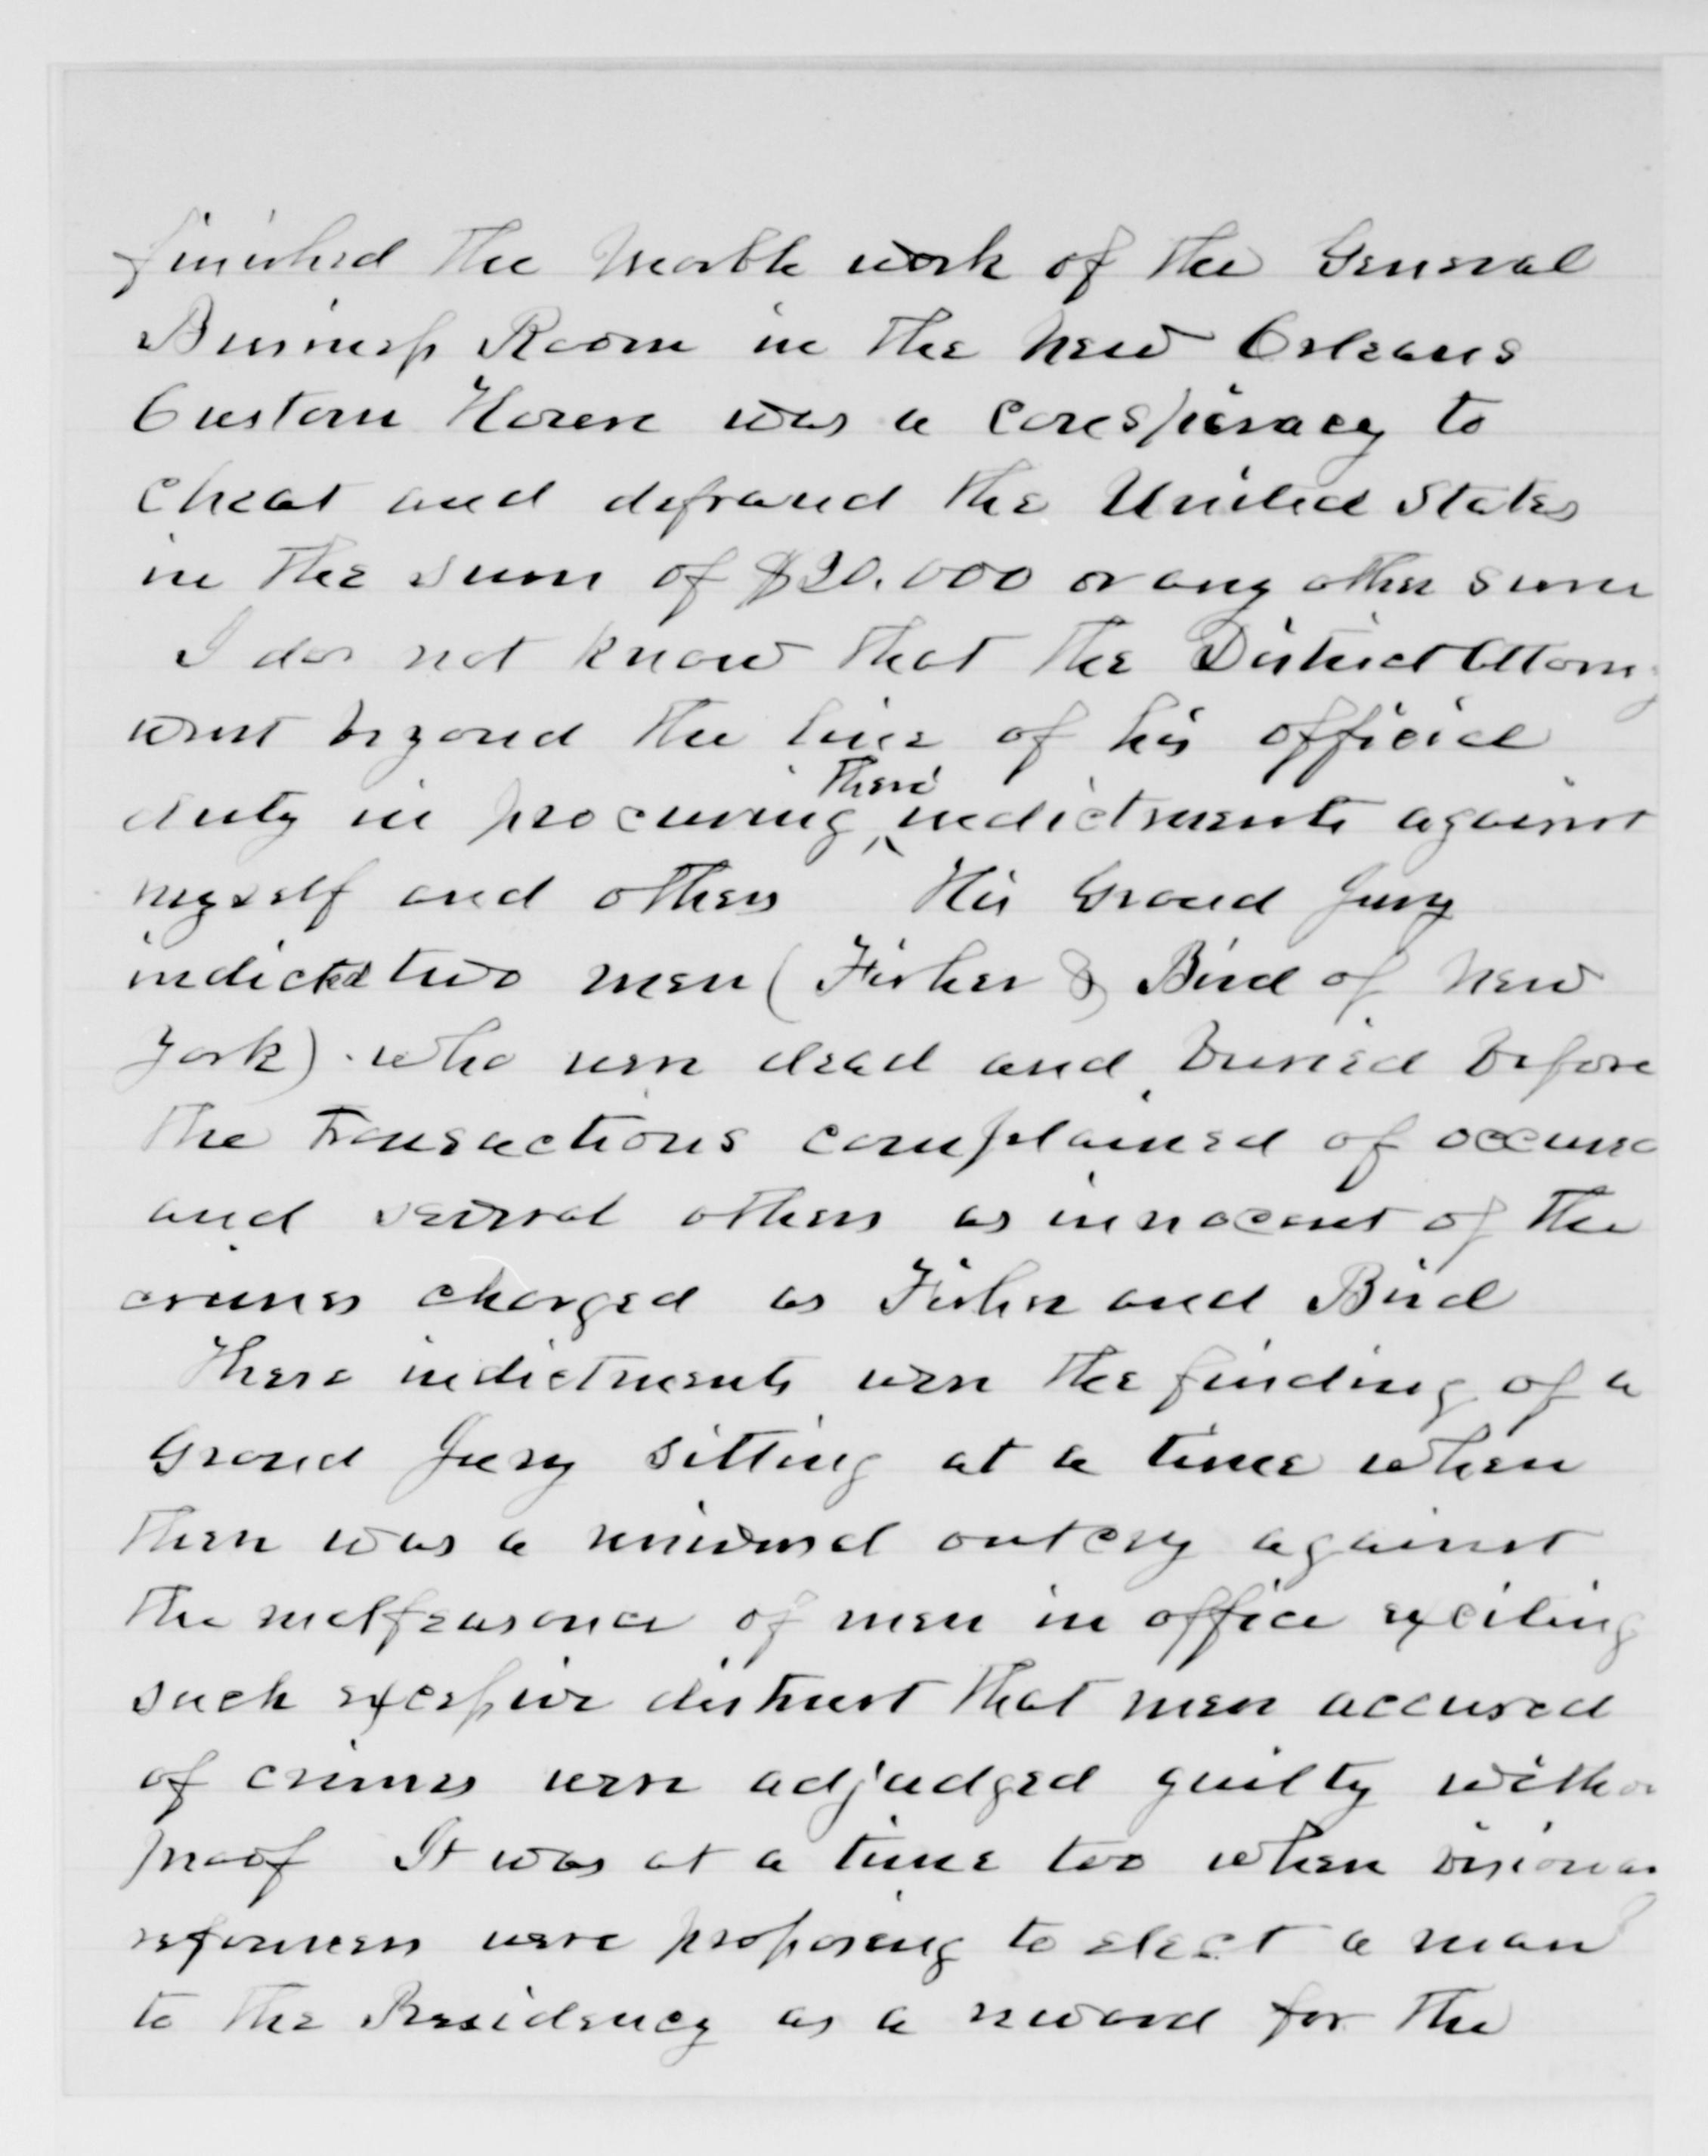 finished the Marble work of the General
Business Room in the New Orleans
Custom House was a conspiracy to
cheat and defraud the United States
in the sum of $20.000 or any other sum
I do not know that the District Attorney
went beyond the line of his official
duty in procuring these indictments against
myself and others His Grand Jury
indicted two men (Fisher & Bird of New
York) who were dead and buried before
the transactions complained of occurred
and several others as innocent of the
crimes charged as Fisher and Bird
These indictments were the finding of a
Grand Jury sitting at a time when
there was a universal outcry against
the malfeasance of men in office exciting
such excessive distrust that men accused
of crimes were adjudged guilty witho
proof It was at a time too when visionar
reformers were proposing to elect a man
to the Presidency as a reward for the